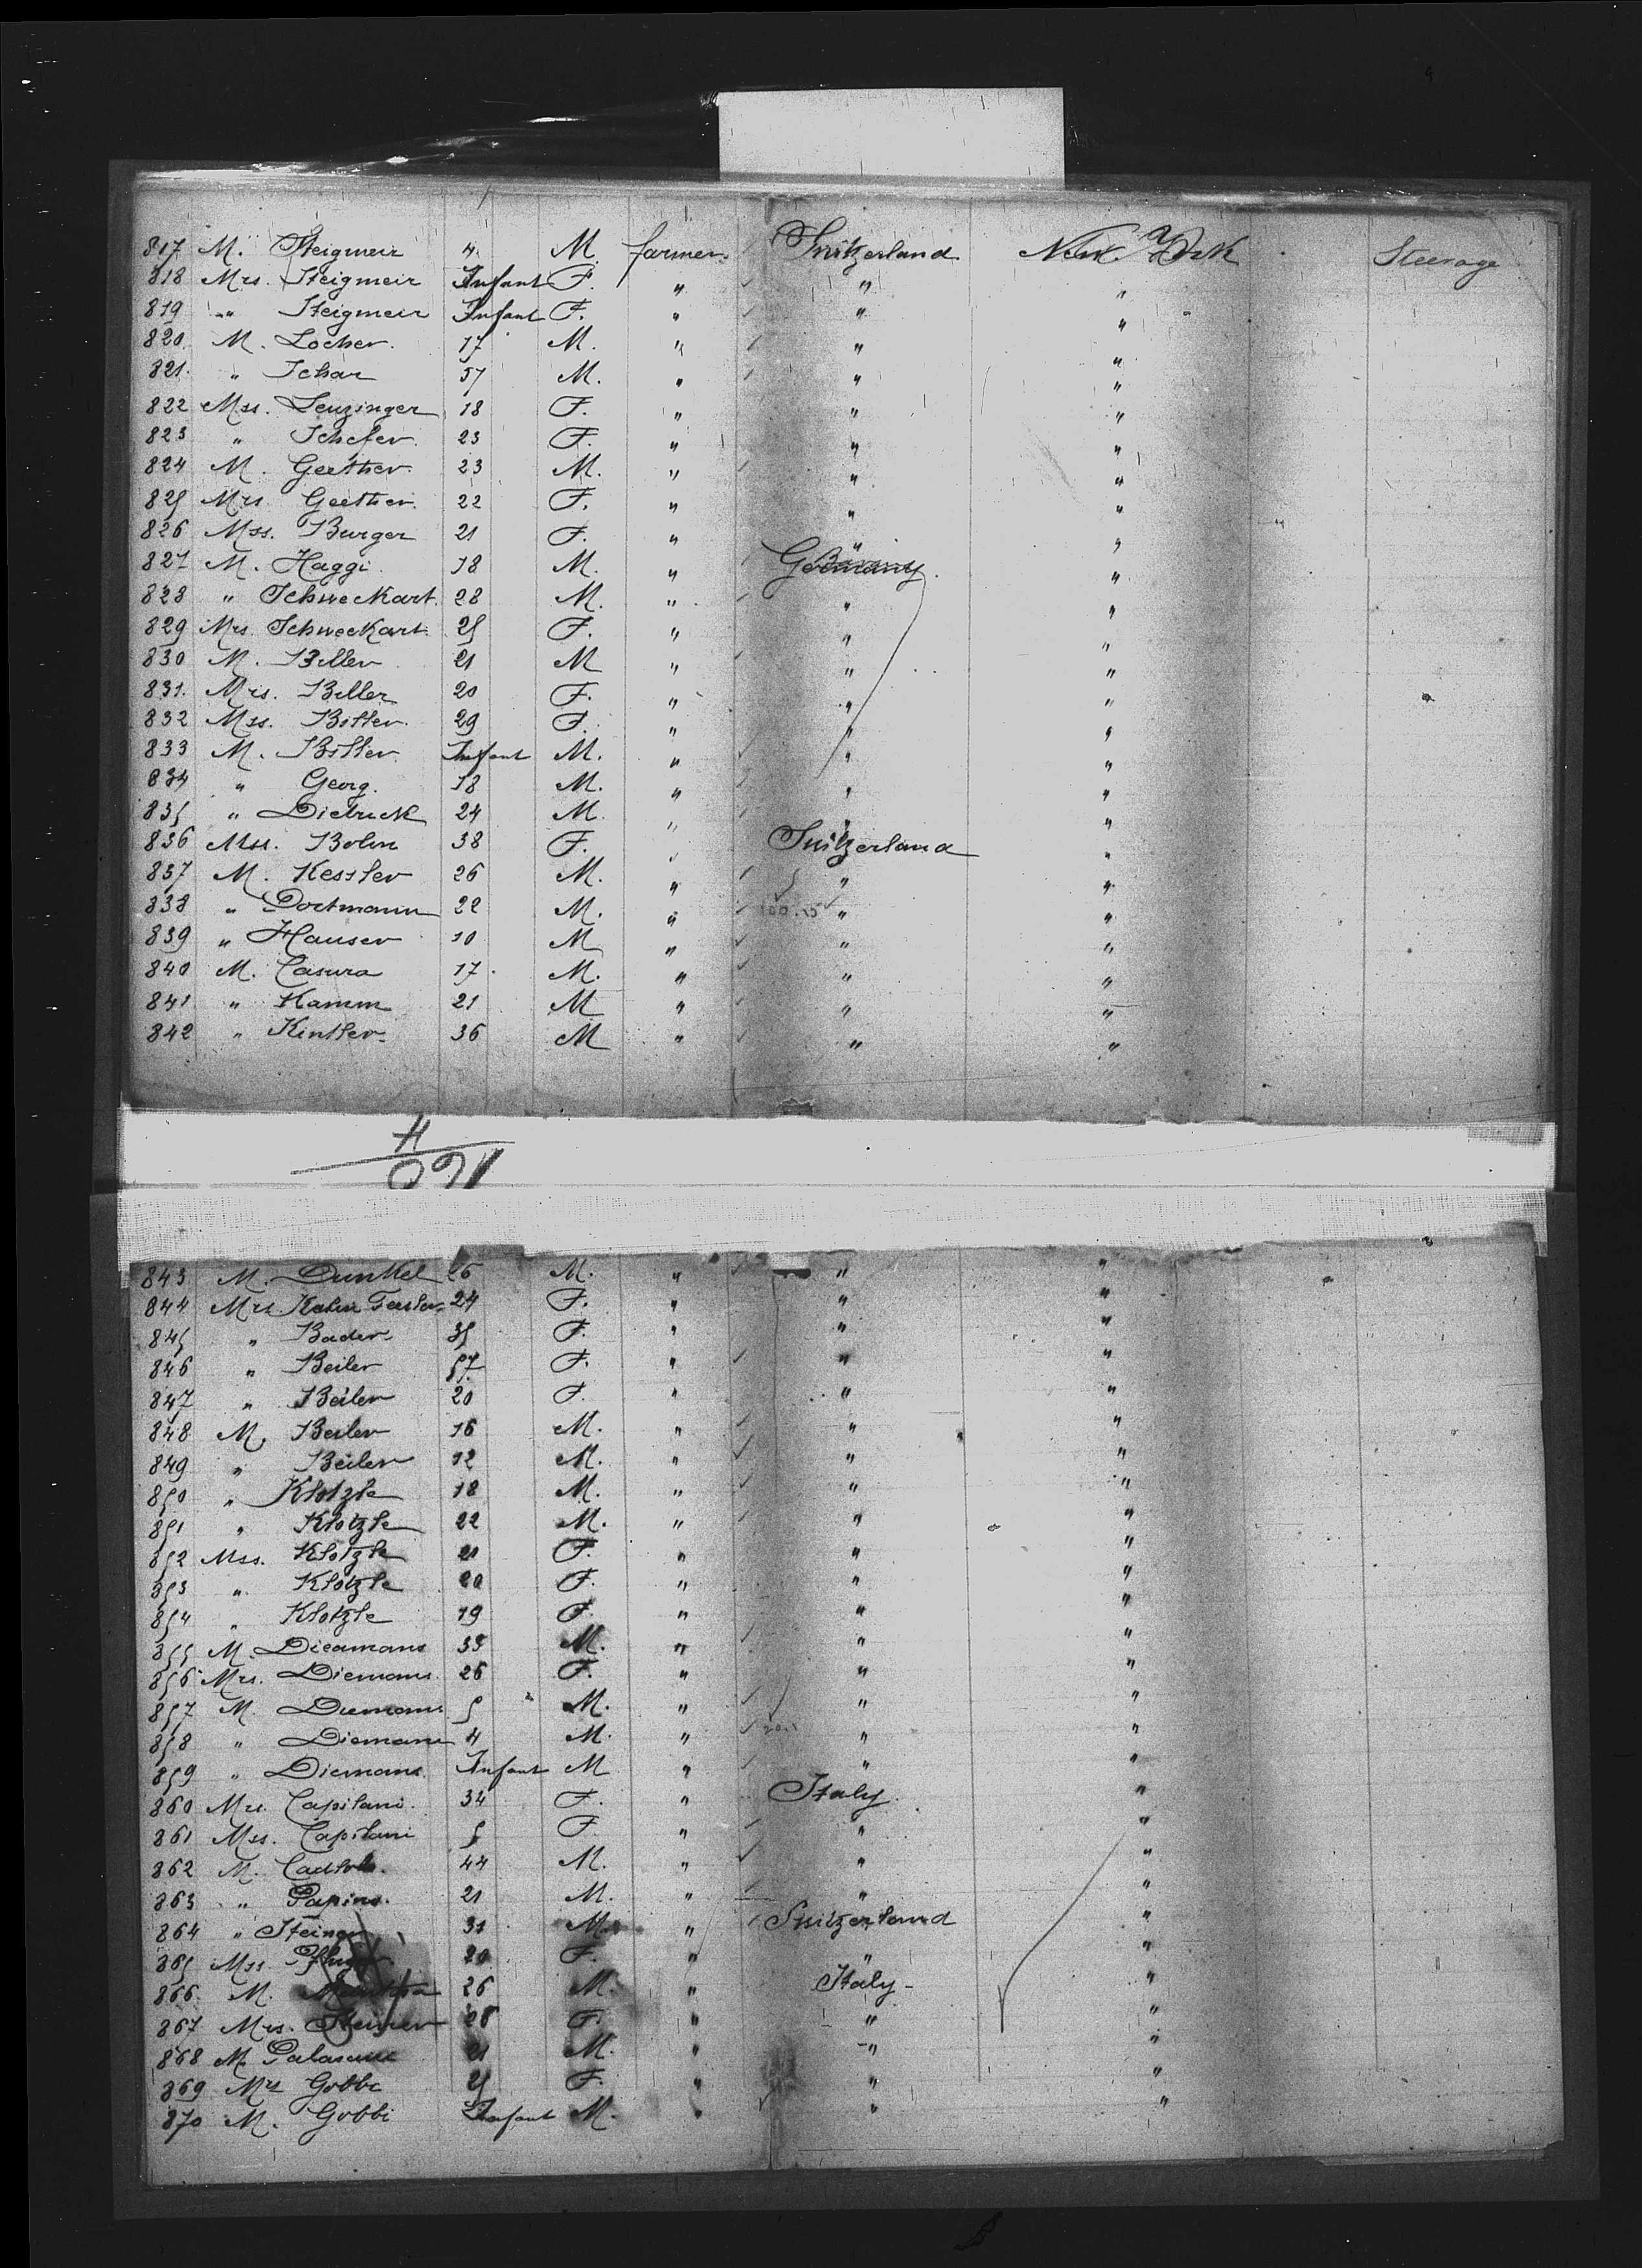 817 M. Steigmeir 4. M. farmer. Switzerland New York Steerage
818 Mrs. Steigmeir Infant F. " " "
819 " Steigmeir Infant F. " " "
820. M. Locher. 17 M. " " "
821. " Schar 57 M. " " "
822 Mss. Leuzinger 18 F. " " "
823 " Schefer. 23 F. " " "
824 M. Geether. 23 M. " " "
825 Mrs. Geether. 22 F. " " "
826 Mss. Burger 21 F. " " "
827 M. Haggi. 18 M. " Germany. "
828 " Schweckart. 28 M. " " "
829 Mrs. Schweckart. 25 F. " " "
830 M. Biller 21 M " " "
831. Mrs. Biller 20 F. " " "
832 Mss. Bitter. 29 F. " " "
833 M. Bitter. Infant M. " " "
834 " Georg. 18 M. " " "
835 " Dietrick 24 M. " " "
836 Mss. Bohn 38 F. " Switzerland "
837 M. Kessler 26 M. " " "
838 " Dortmann 22 M. " " "
839 " Hauser 10 M " " "
840 M. Casura 17. M. " " "
841 " Kamm 21 M " " "
842 " Kintler. 36 M " " "
160
H
843 M. Dunkel 26 M. " " "
844 Mrs. 24 F. " " "
845 " Bader 35 F. " " "
846 " Beiler 57. F. " " "
847 " Beiler 20 F. " " "
848 M. Beiler 16 M. " " "
849 " Beiler 12 M. " " "
850 " Klotzle 18 M. " " "
851 " Klotzle 22 M. " " "
852 Mss. Klotzle 21 F. " " "
853 " Klotzle 20 F. " " "
854 " Klotzle 19 F. " " "
855 M. Dieamans 35 M. " " "
856 Mrs. Diemans. 26 F. " " "
857 M. Diemans 5 M. " " "
858 " Diemans 4 M. " " "
859 " Diemans. Infant M " " "
860 Mrs. Capitani. 34 F. " Italy. "
861 Mss. Capitani 5 F. " " "
862 M. 44 M. " " "
863 " Papino. 21 M. " " "
864 " Steiner 31 M. " Switzerland "
865 Mss. 20 F. " " "
866. M. 26 M. " Italy - "
867 Mrs. Steiner 28 F. " " "
868 M. 21 M. " " "
869 Mrs Gobbi 25 F. " " "
870 M. Gobbi Infant M. " " "